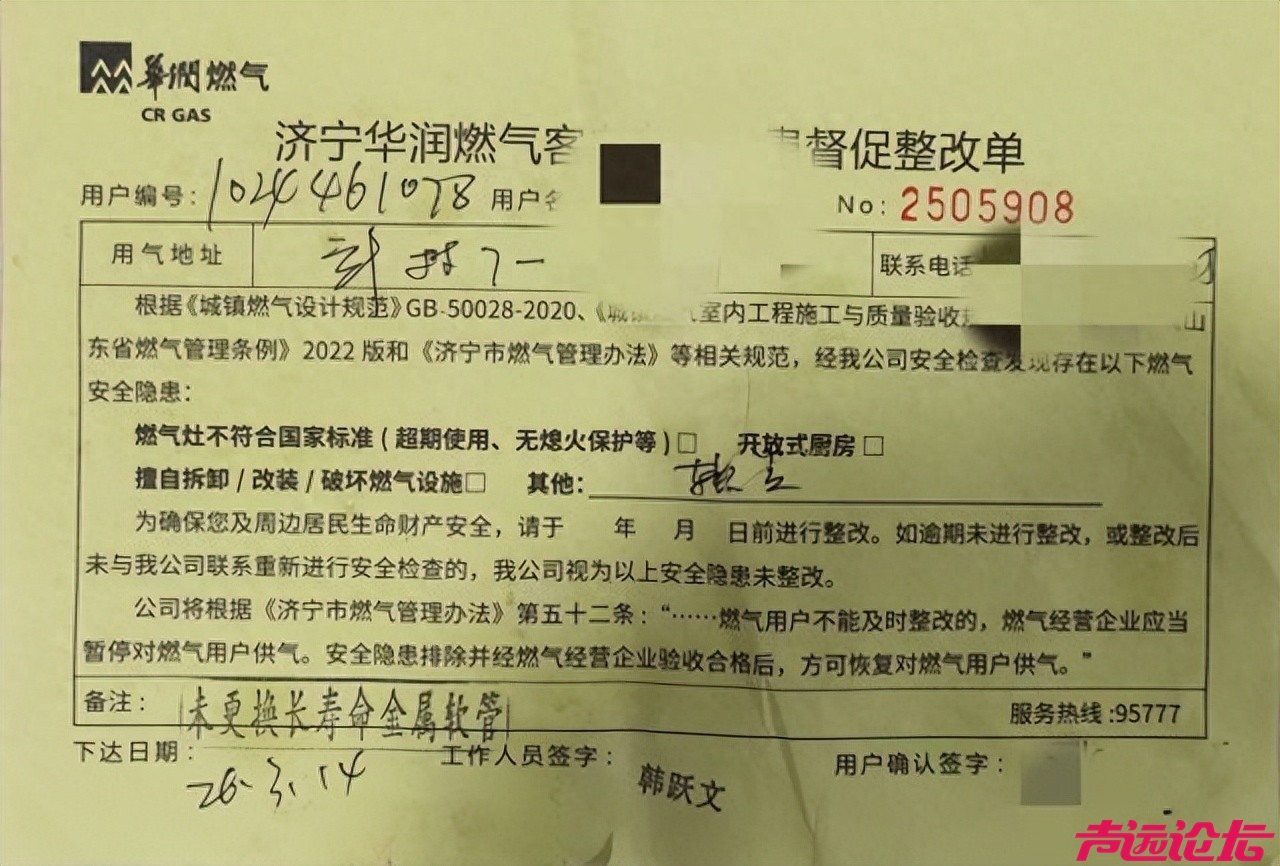 華潤燃气
CR GAS
济宁华润燃气客 督促整改单
用户编号：1024461078 用户名
No：2505908
用气地址 联系电话
根据《城镇燃气设计规范》GB-50028-2020、《城 气室内工程施工与质量验收规 山
东省燃气管理条例》2022版和《济宁市燃气管理办法》等相关规范，经我公司安全检查发现存在以下燃气
安全隐患：
燃气灶不符合国家标准（超期使用、无熄火保护等）□ 开放式厨房□
擅自拆卸/改装/破坏燃气设施□ 其他：
为确保您及周边居民生命财产安全，请于 年 月 日前进行整改。如逾期未进行整改，或整改后
未与我公司联系重新进行安全检查的，我公司视为以上安全隐患未整改。
公司将根据《济宁市燃气管理办法》第五十二条：“……燃气用户不能及时整改的，燃气经营企业应当
暂停对燃气用户供气。安全隐患排除并经燃气经营企业验收合格后，方可恢复对燃气用户供气。”
备注：未更换长寿命金属软管 服务热线:95777
下达日期：26.3.14 工作人员签字：韩跃文 用户确认签字：
声远论坛